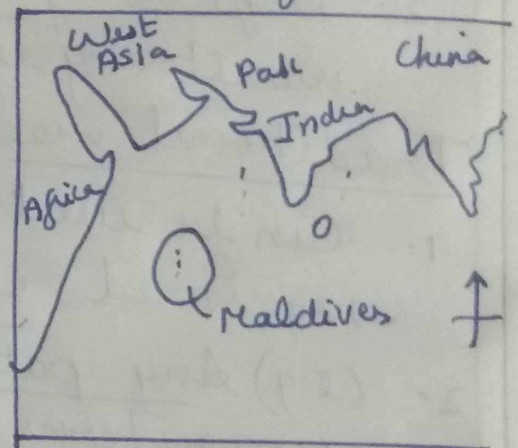 West
Asia
Pak
China
India
Africa
Maldives